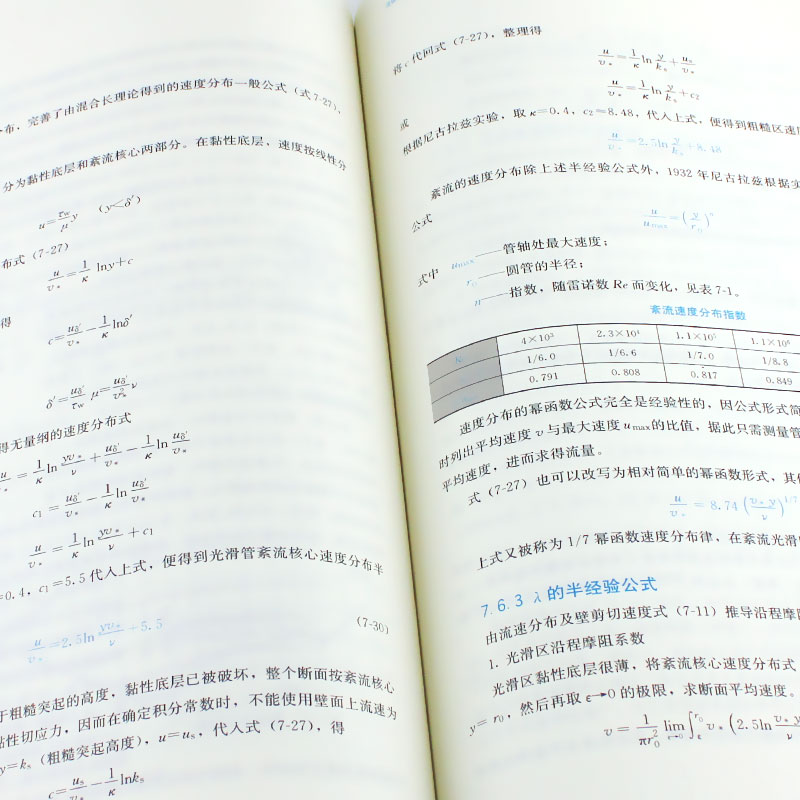 布，完善了由混合长理论得到的速度分布一般公式（式7-27），
分为黏性底层和紊流核心两部分。在黏性底层，速度按线性分
u=τw/μ y （y<δ′）
布式（7-27）
u/v*=1/κ lny+c
得
c=uδ′/v*−1/κ lnδ′
δ′=uδ′/τw μ=uδ′/v*² ν
得无量纲的速度分布式
u/v*=1/κ ln yv*/ν+uδ′/v*−1/κ ln uδ′/v*
c₁=uδ′/v*−1/κ ln uδ′/v*
u/v*=1/κ ln yv*/ν+c₁
=0.4，c₁=5.5代入上式，便得到光滑管紊流核心速度分布半
u/v*=2.5ln yv*/ν+5.5 （7-30）
于粗糙突起的高度，黏性底层已被破坏，整个断面按紊流核心
黏性切应力，因而在确定积分常数时，不能使用壁面上流速为
y=ks（粗糙突起高度），u=us，代入式（7-27），得
c=us/v*−1/κ lnks
将c代回式（7-27），整理得
u/v*=1/κ ln y/ks+us/v*
或
u/v*=1/κ ln y/ks+c₂
根据尼古拉兹实验，取κ=0.4，c₂=8.48，代入上式，便得到粗糙区速度
u/v*=2.5ln y/ks+8.48
紊流的速度分布除上述半经验公式外，1932年尼古拉兹根据实
公式
u/umax=(y/r₀)ⁿ
式中 umax——管轴处最大速度；
r₀——圆管的半径；
n——指数，随雷诺数Re而变化，见表7-1。
紊流速度分布指数
Re 4×10³ 2.3×10⁴ 1.1×10⁵ 1.1×10⁶
1/6.0 1/6.6 1/7.0 1/8.8
0.791 0.808 0.817 0.849
速度分布的幂函数公式完全是经验性的，因公式形式简
时列出平均速度v与最大速度umax的比值，据此只需测量管
平均速度，进而求得流量。
式（7-27）也可以改写为相对简单的幂函数形式，其
u/v*=8.74(v*y/ν)^1/7
上式又被称为1/7幂函数速度分布律，在紊流光滑
7.6.3 λ的半经验公式
由流速分布及壁剪切速度式（7-11）推导沿程摩阻
1. 光滑区沿程摩阻系数
光滑区黏性底层很薄，将紊流核心速度分布式
y=r₀，然后再取ϵ→0的极限，求断面平均速度。
v=1/πr₀² lim ϵ→0 ∫ϵ^r₀ v*(2.5ln v*y/